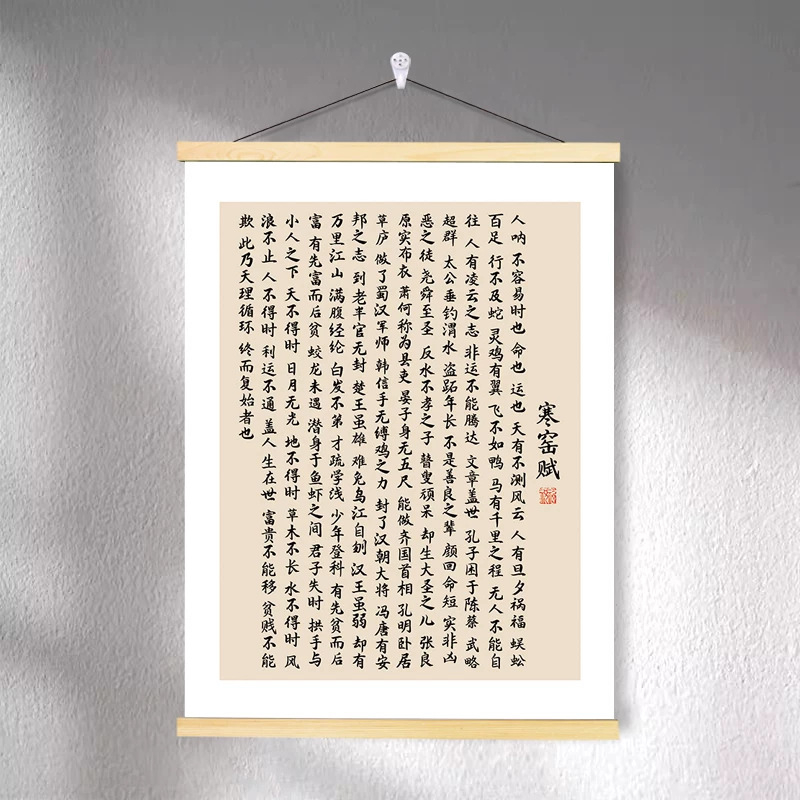 寒窑赋
人呐 不容易时也 命也 运也 天有不测风云 人有旦夕祸福 蜈蚣
百足 行不及蛇 灵鸡有翼 飞不如鸭 马有千里之程 无人不能自
往 人有凌云之志 非运不能腾达 文章盖世 孔子困于陈蔡 武略
超群 太公垂钓渭水 盗跖年长 不是善良之辈 颜回命短 实非凶
恶之徒 尧舜至圣 反水不孝之子 瞽叟顽呆 却生大圣之儿 张良
原实布衣 萧何称为县吏 晏子身无五尺 能做齐国首相 孔明卧居
草庐 做了蜀汉军师 韩信手无缚鸡之力 封了汉朝大将 冯唐有安
邦之志 到老半官无封 楚王虽雄 难免乌江自刎 汉王虽弱 却有
万里江山 满腹经纶 白发不第 才疏学浅 少年登科 有先贫而后
富 有先富而后贫 蛟龙未遇 潜身于鱼虾之间 君子失时 拱手与
小人之下 天不得时 日月无光 地不得时 草木不长 水不得时 风
浪不止 人不得时 利运不通 盖人生在世 富贵不能移 贫贱不能
欺 此乃天理循环 终而复始者也